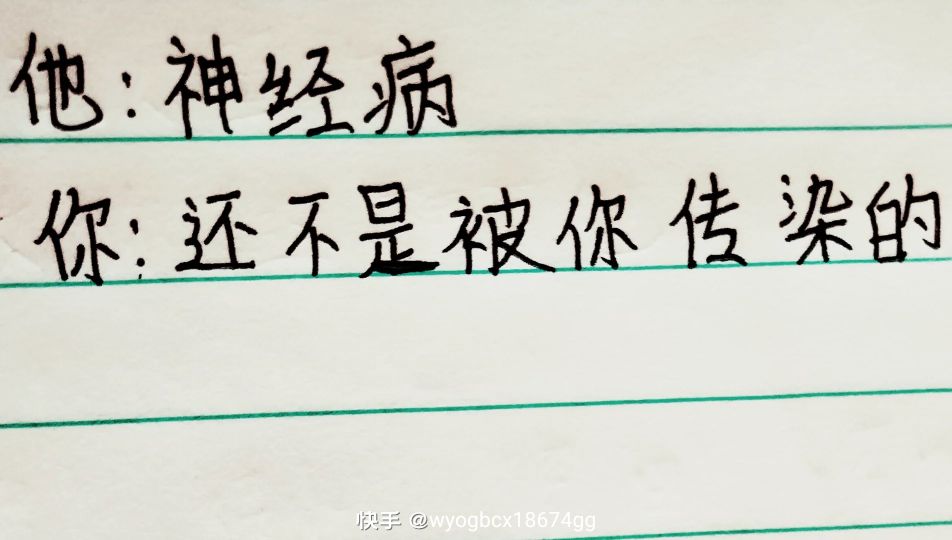 他:神经病
你:还不是被你传染的
快手 @wyogbcx18674gg